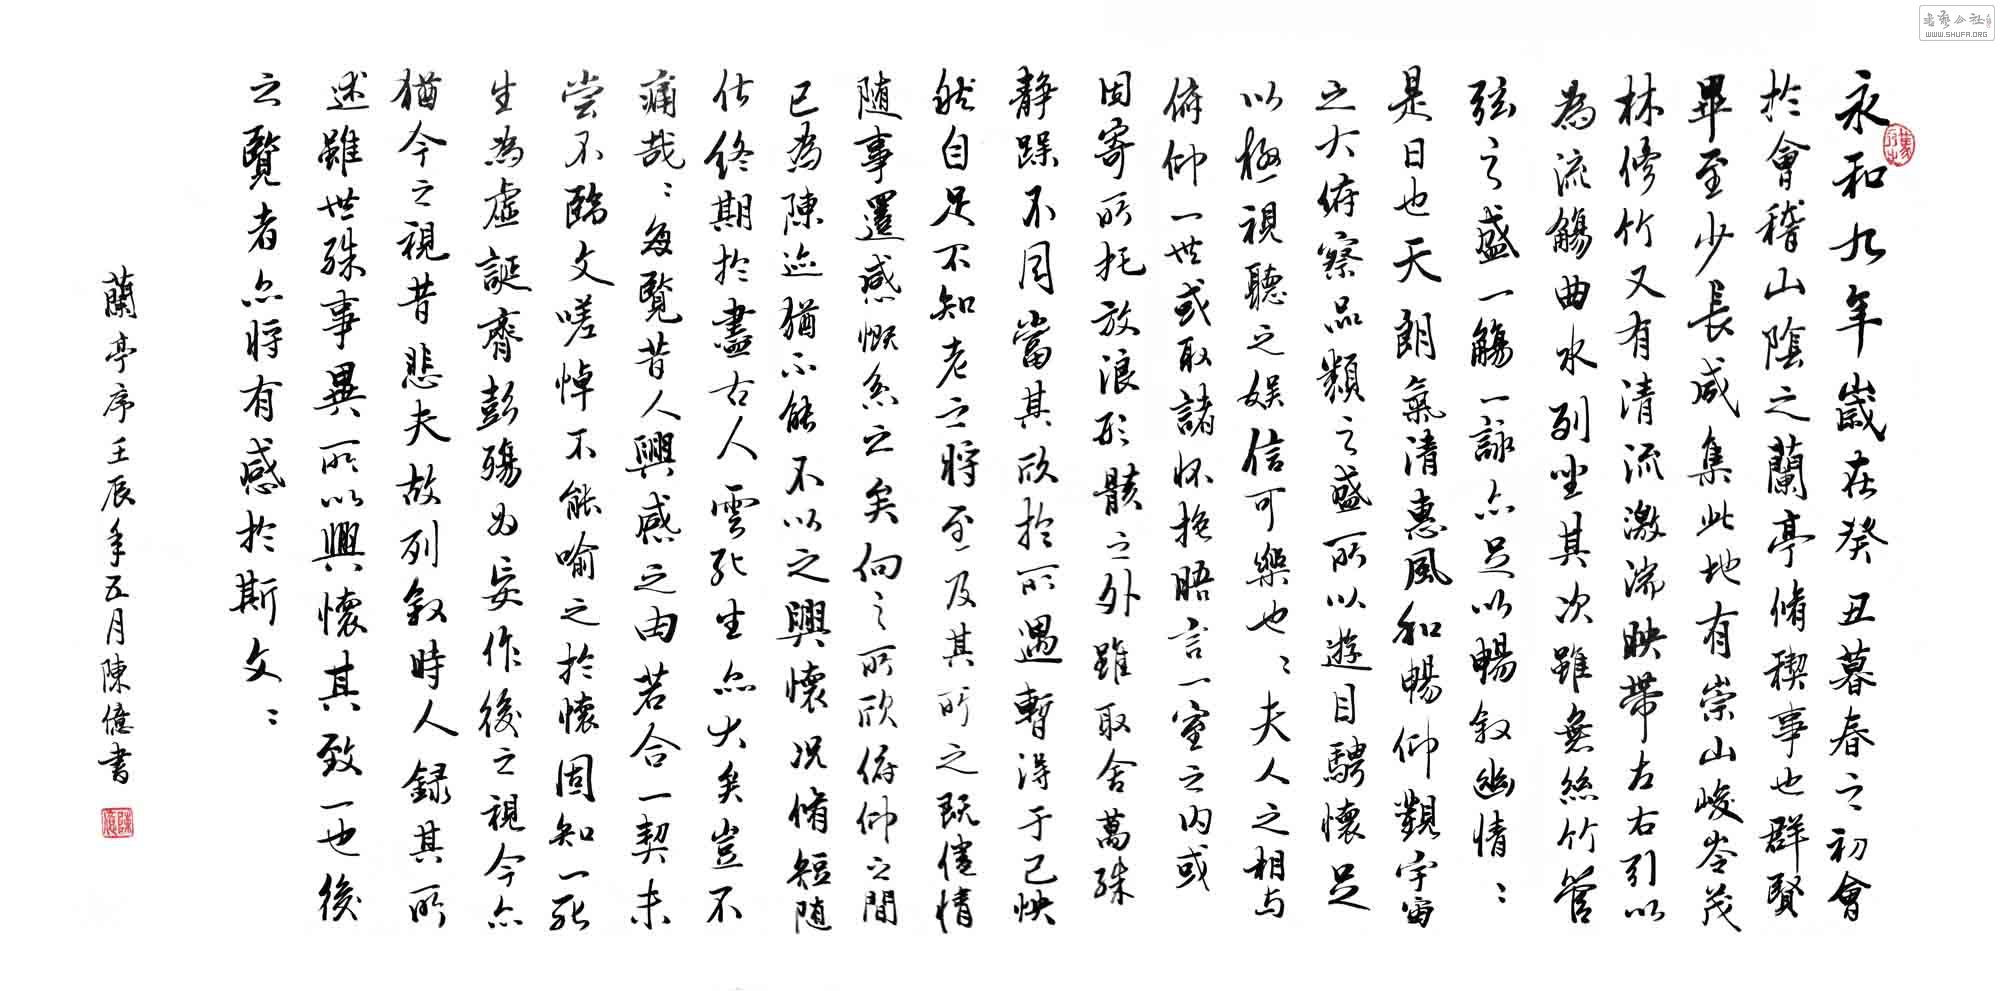 永和九年歲在癸丑暮春之初會
於會稽山陰之蘭亭脩稧事也群賢
畢至少長咸集此地有崇山峻岺茂
林修竹又有清流激湍映帶左右引以
為流觴曲水列坐其次雖無絲竹管
弦之盛一觴一詠亦足以暢叙幽情：
是日也天朗氣清惠風和暢仰觀宇宙
之大俯察品類之盛所以遊目騁懷足
以極視聽之娱信可樂也：夫人之相與
俯仰一世或取諸懷抱晤言一室之内或
因寄所托放浪形骸之外雖取舍萬殊
静躁不同當其欣於所遇暫得于己怏
然自足不知老之將至及其所之既倦情
隨事遷感慨系之矣向之所欣俯仰之間
已為陳迹猶不能不以之興懷况脩短随
化终期於盡古人雲死生亦大矣豈不
痛哉：每覽昔人興感之由若合一契未
尝不臨文嗟悼不能喻之於懷固知一死
生為虚誕齊彭殤為妄作後之視今亦
猶今之視昔悲夫故列叙時人録其所
述雖世殊事異所以興懷其致一也後
之覽者亦將有感於斯文：
蘭亭序壬辰年五月陳億書
書藝公社
WWW.SHUFA.ORG